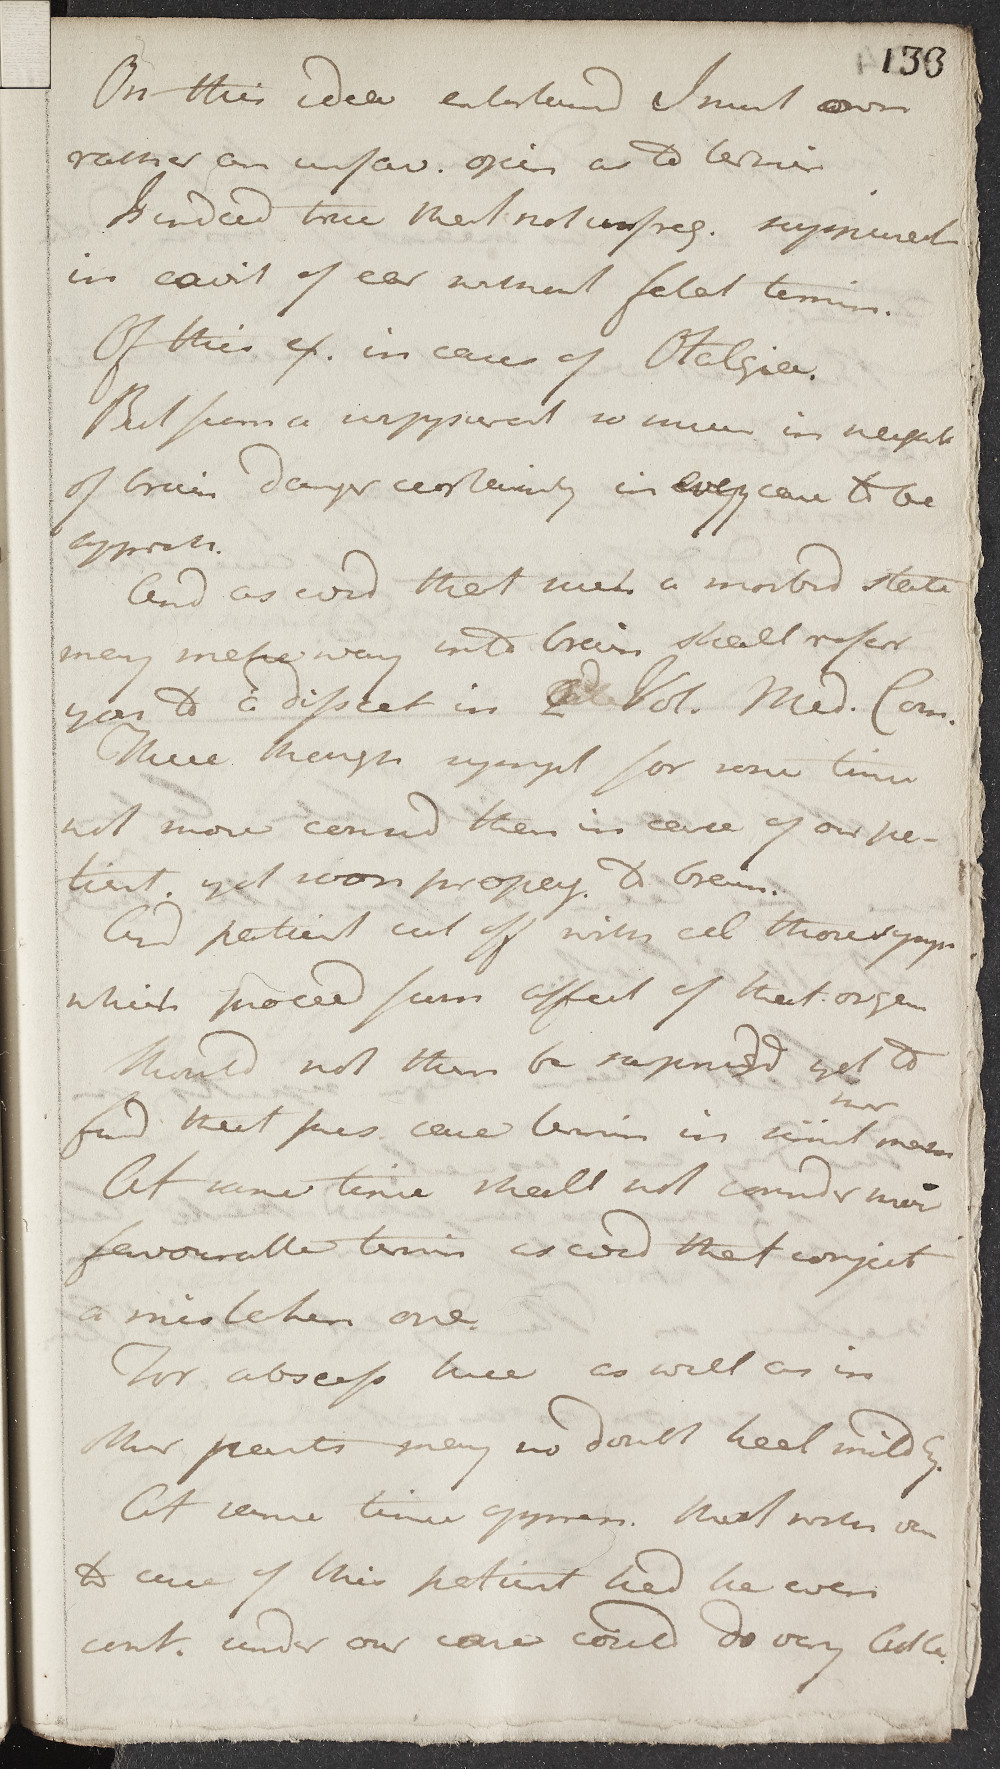 136
On this idea entertained I must own
rather an unfav. opin as to termin
Is indeed true that not unfreq. suppurat
in cavit of ear without fatal termin.
Of this ex. in cases of Otalgia.
But from a suppurat so much in neighb
of brain danger certainly in every case to be
appreh.
And as evid that such a morbid state
may make way into brain shall refer
you to a dissect in 2d Vol. Med. Com.
There though sympt for some time
not more consid then in case of our pa-
tient. yet soon propag. to brain.
And patient cut off with all those symp
which proceed from affect of that organ
Should not then be surprised yet to
find that pres case termin in simil mann
At same time shall not consider mor
favourable termin as evid that conject
a mistaken one.
For abscess here as well as in
other parts may no doubt heal mildly.
At same time appreh. that with
to case of this patient had he even
cont. under our care could do very little.